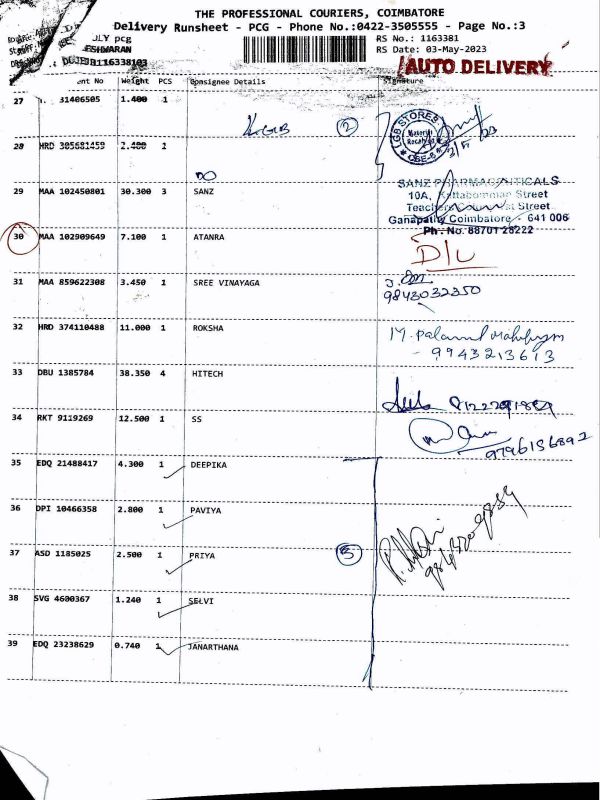 THE PROFESSIONAL COURIERS, COIMBATORE
Delivery Runsheet - PCG - Phone No.:0422-3505555 - Page No.:3
RS No.: 1163381
RS Date: 03-May-2023
AUTO DELIVERY
pcg
ent No Weight PCS Consignee Details Signature
27 31406505 1.400 1
LGB 2
LGB STORES
Material
28 HRD 305681459 2.480 1
DO
29 MAA 102450801 30.300 3 SANZ
SANZ PHARMACEUTICALS
10A, Kattabomman Street
Teachers Street
Ganapathy Coimbatore - 641 006
Ph. No. 88701 28222
30 MAA 102909649 7.100 1 ATANRA
D/L
31 MAA 859622308 3.450 1 SREE VINAYAGA
9843032350
32 HRD 374110488 11.000 1 ROKSHA
- 9943213613
33 DBU 1385784 38.350 4 HITECH
34 RKT 9119269 12.500 1 SS
9796156892
35 EDQ 21488417 4.300 1 DEEPIKA
36 DPI 10466358 2.800 1 PAVIYA
37 ASD 1185025 2.500 1 PRIYA
5
38 SVG 4600367 1.240 1 SELVI
39 EDQ 23238629 0.740 1 JANARTHANA